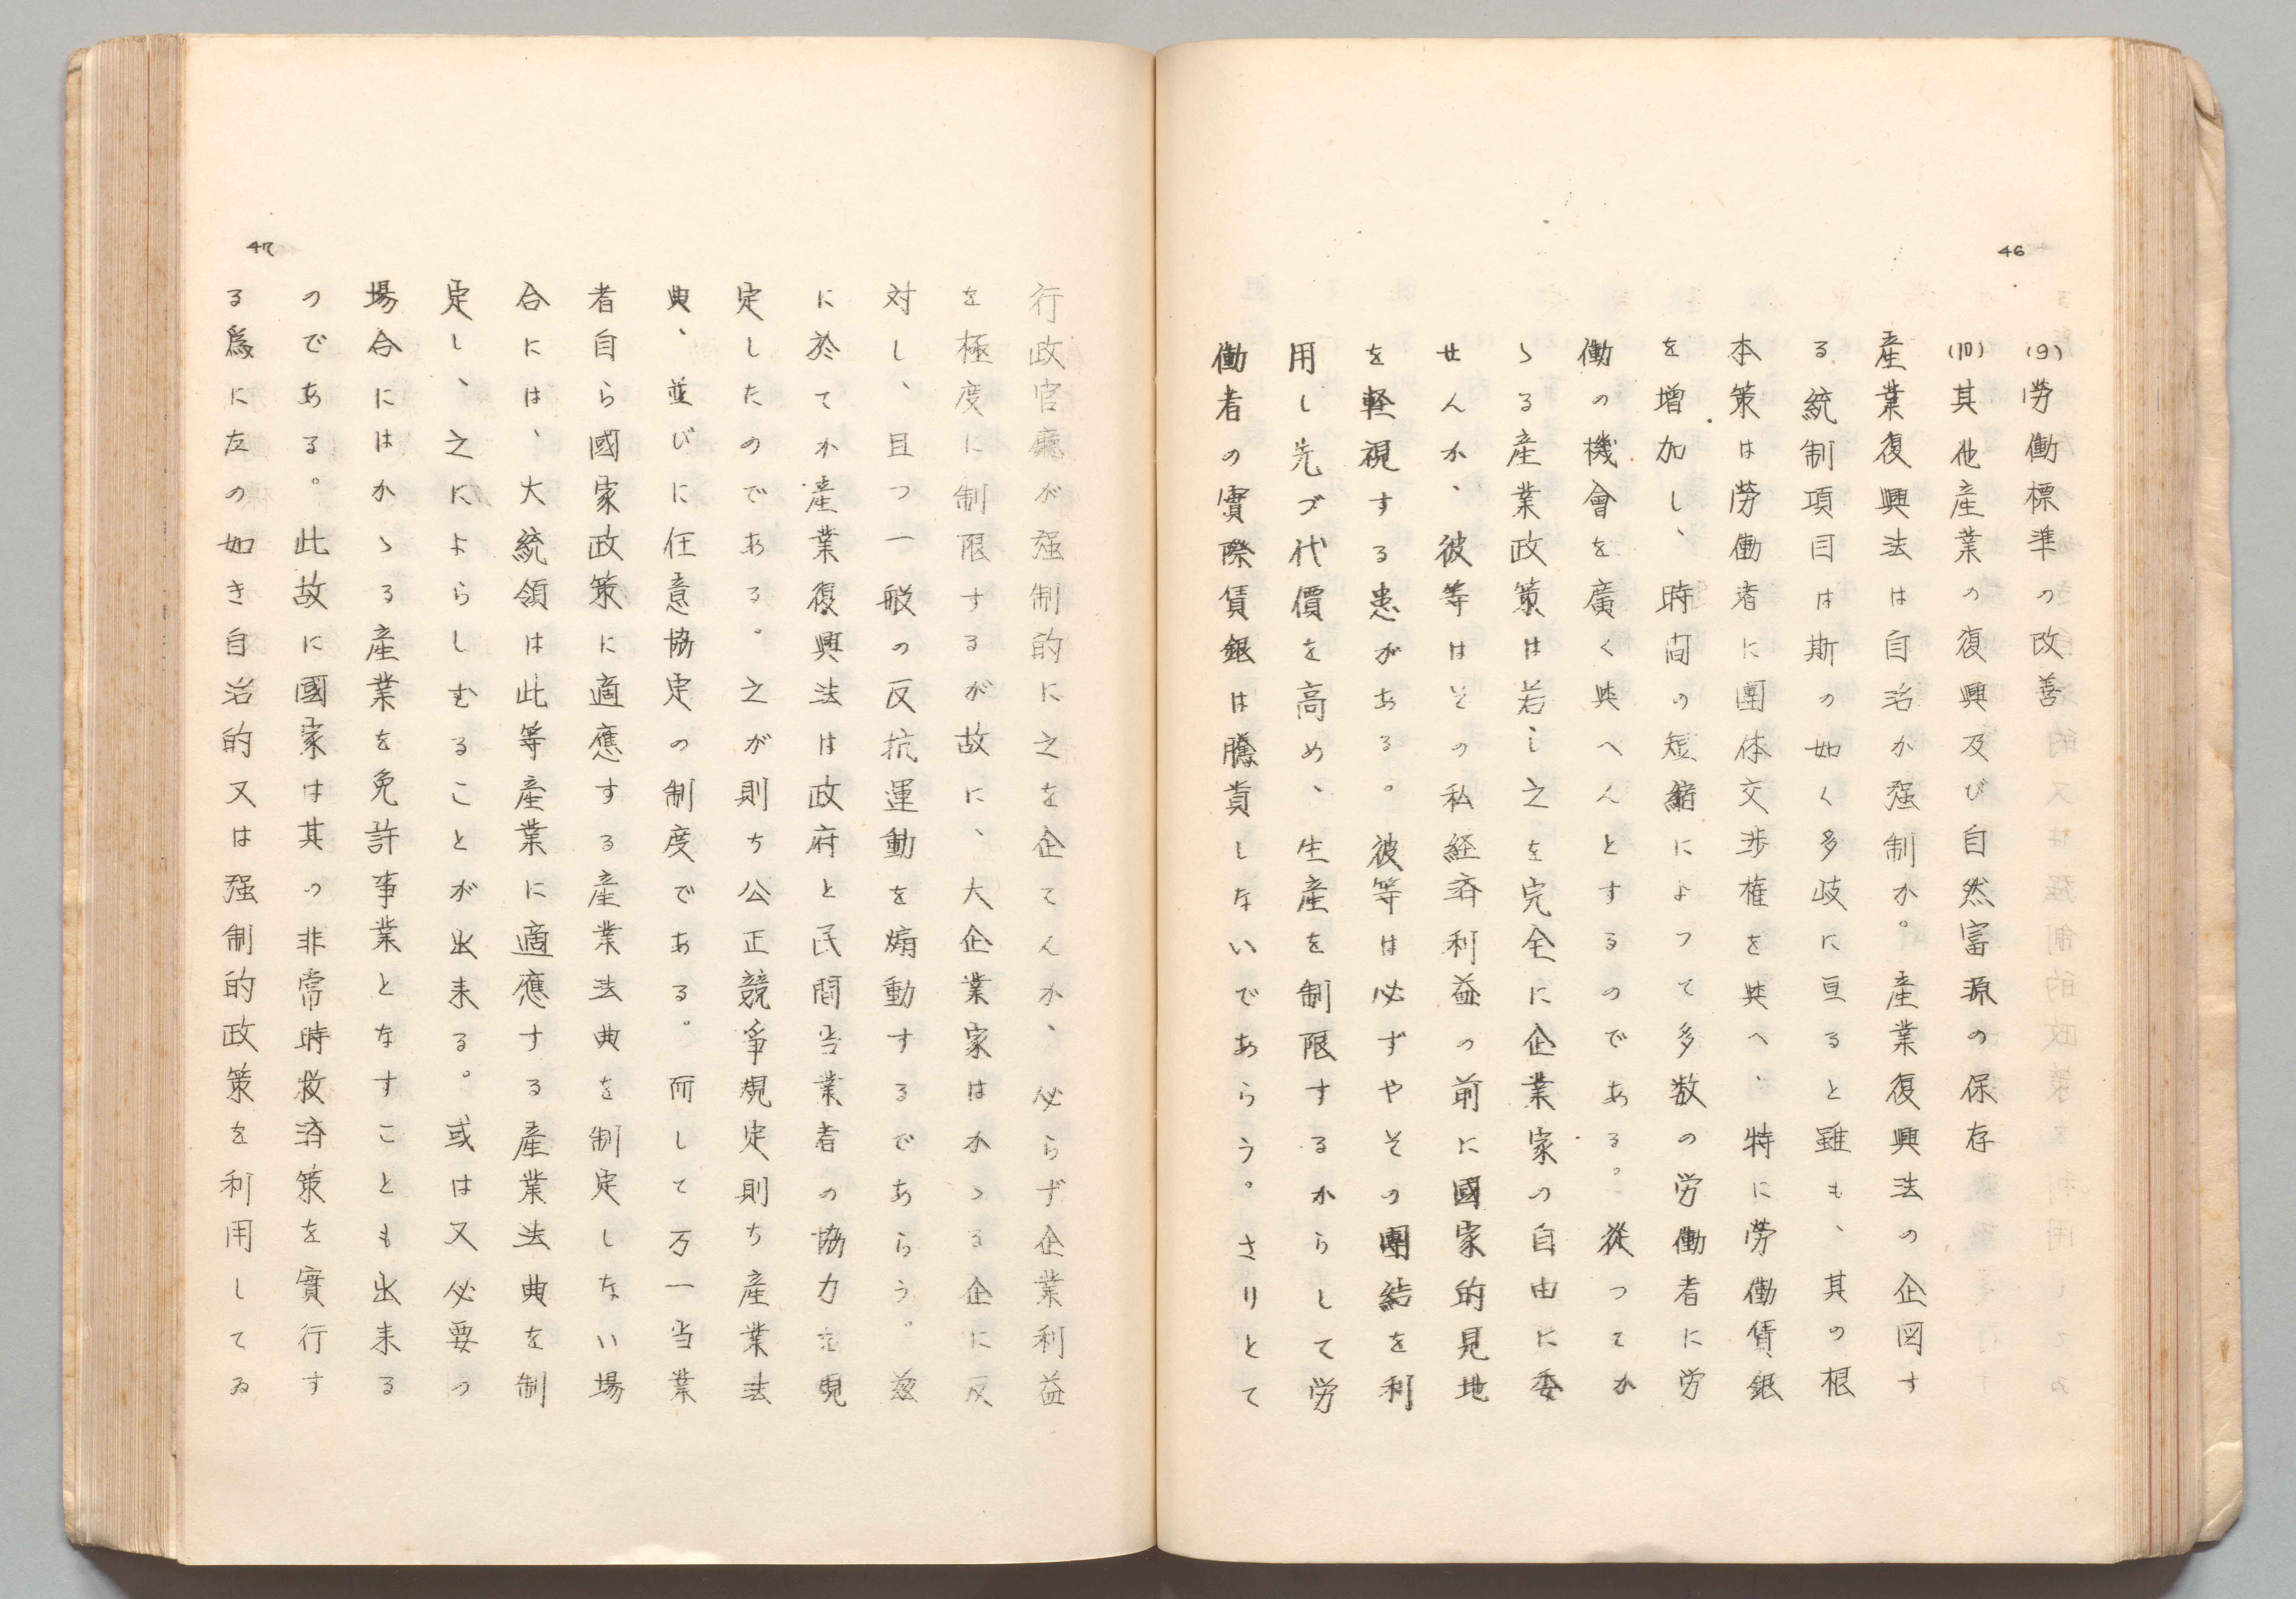 46
(9)勞働標準の改善
(10)其他産業の復興及び自然富源の保存
産業復興法は自治か强制か。産業復興法の企図す
る統制項目は斯の如く多岐に亘ると雖も、其の根
本策は勞働者に團体交渉権を與へ、特に勞働賃銀
を増加し、時間の短縮によつて多数の労働者に労
働の機會を廣く與へんとするのである。從つてか
ゝる産業政策は若し之を完全に企業家の自由に委
せんか、彼等はその私経済利益の前に國家的見地
を軽視する患がある。彼等は必ずやその團結を利
用し先づ代價を高め、生産を制限するからして労
働者の實際賃銀は騰貴しないであらう。さりとて
47
行政官廳が强制的に之を企てんか、必らず企業利益
を極度に制限するが故に、大企業家はかゝる企に反
対し、且つ一般の反抗運動を煽動するであらう。茲
に於てか産業復興法は政府と民間当業者の協力を規
定したのである。之が則ち公正競爭規定則ち産業法
典、並びに任意協定の制度である。而して万一当業
者自ら國家政策に適應する産業法典を制定しない場
合には、大統領は此等産業に適應する産業法典を制
定し、之によらしむることが出来る。或は又必要の
場合にはかゝる産業を免許事業となすことも出来る
のである。此故に國家は其の非常時救済策を實行す
る爲に左の如き自治的又は强制的政策を利用してゐ